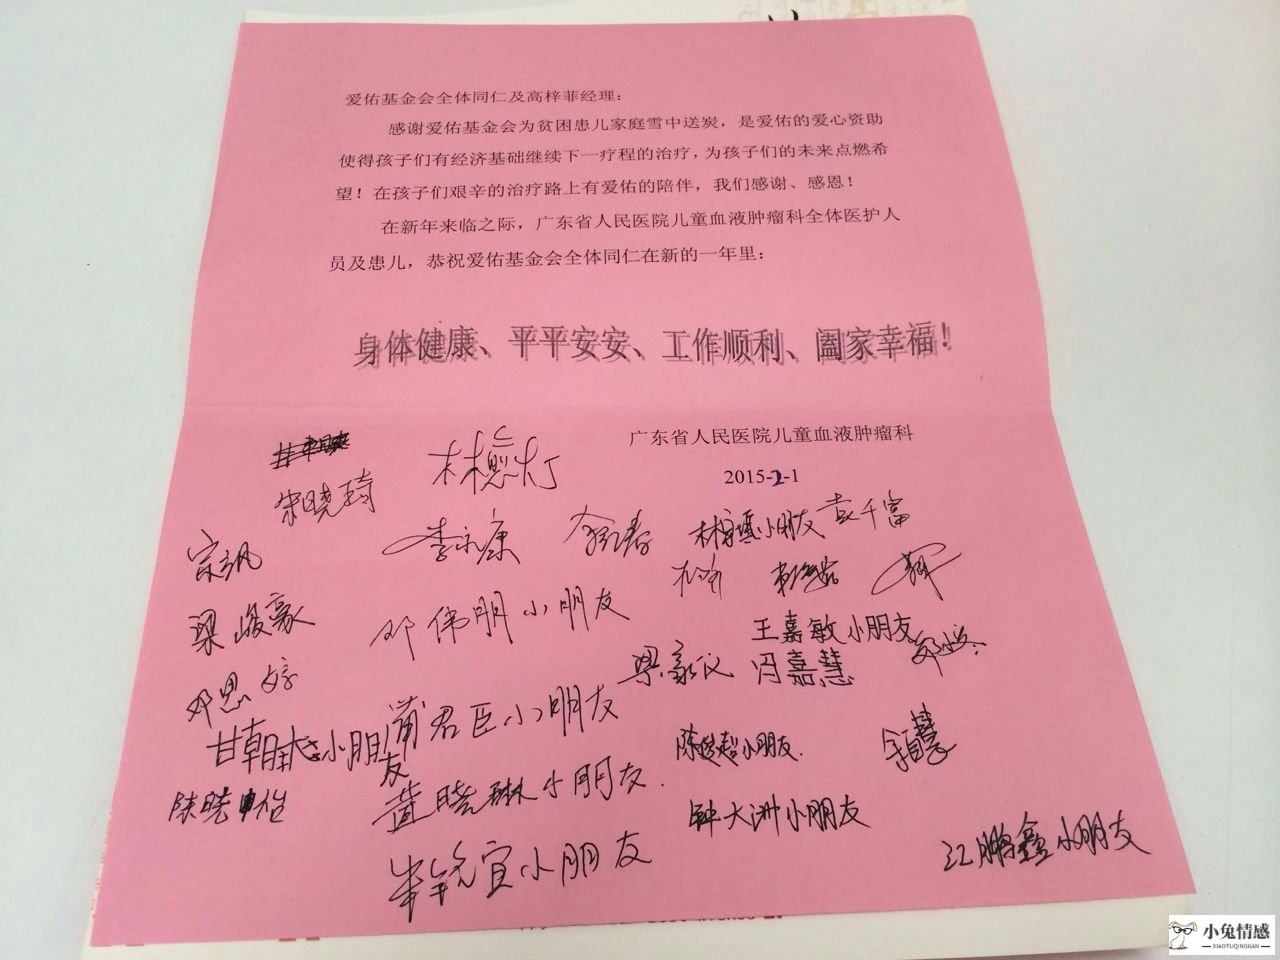 爱佑基金会全体同仁及高梓菲经理：
感谢爱佑基金会为贫困患儿家庭雪中送炭，是爱佑的爱心资助
使得孩子们有经济基础继续下一疗程的治疗，为孩子们的未来点燃希
望！在孩子们艰辛的治疗路上有爱佑的陪伴，我们感谢、感恩！
在新年来临之际，广东省人民医院儿童血液肿瘤科全体医护人
员及患儿，恭祝爱佑基金会全体同仁在新的一年里：
身体健康、平平安安、工作顺利、阖家幸福！
广东省人民医院儿童血液肿瘤科
2015-2-1
宋晓琦
李永康
小朋友
袁千富
梁峻豪
邓伟朋小朋友
王嘉敏小朋友
邓思婷
冯嘉慧
蒲君臣小朋友
甘朝 小朋友
陈俊超小朋友.
黄晓琳小朋友.
陈晓
钟大洲小朋友
宜小朋友
江鹏鑫小朋友
小兔情感
XIAOTUQINGGAN